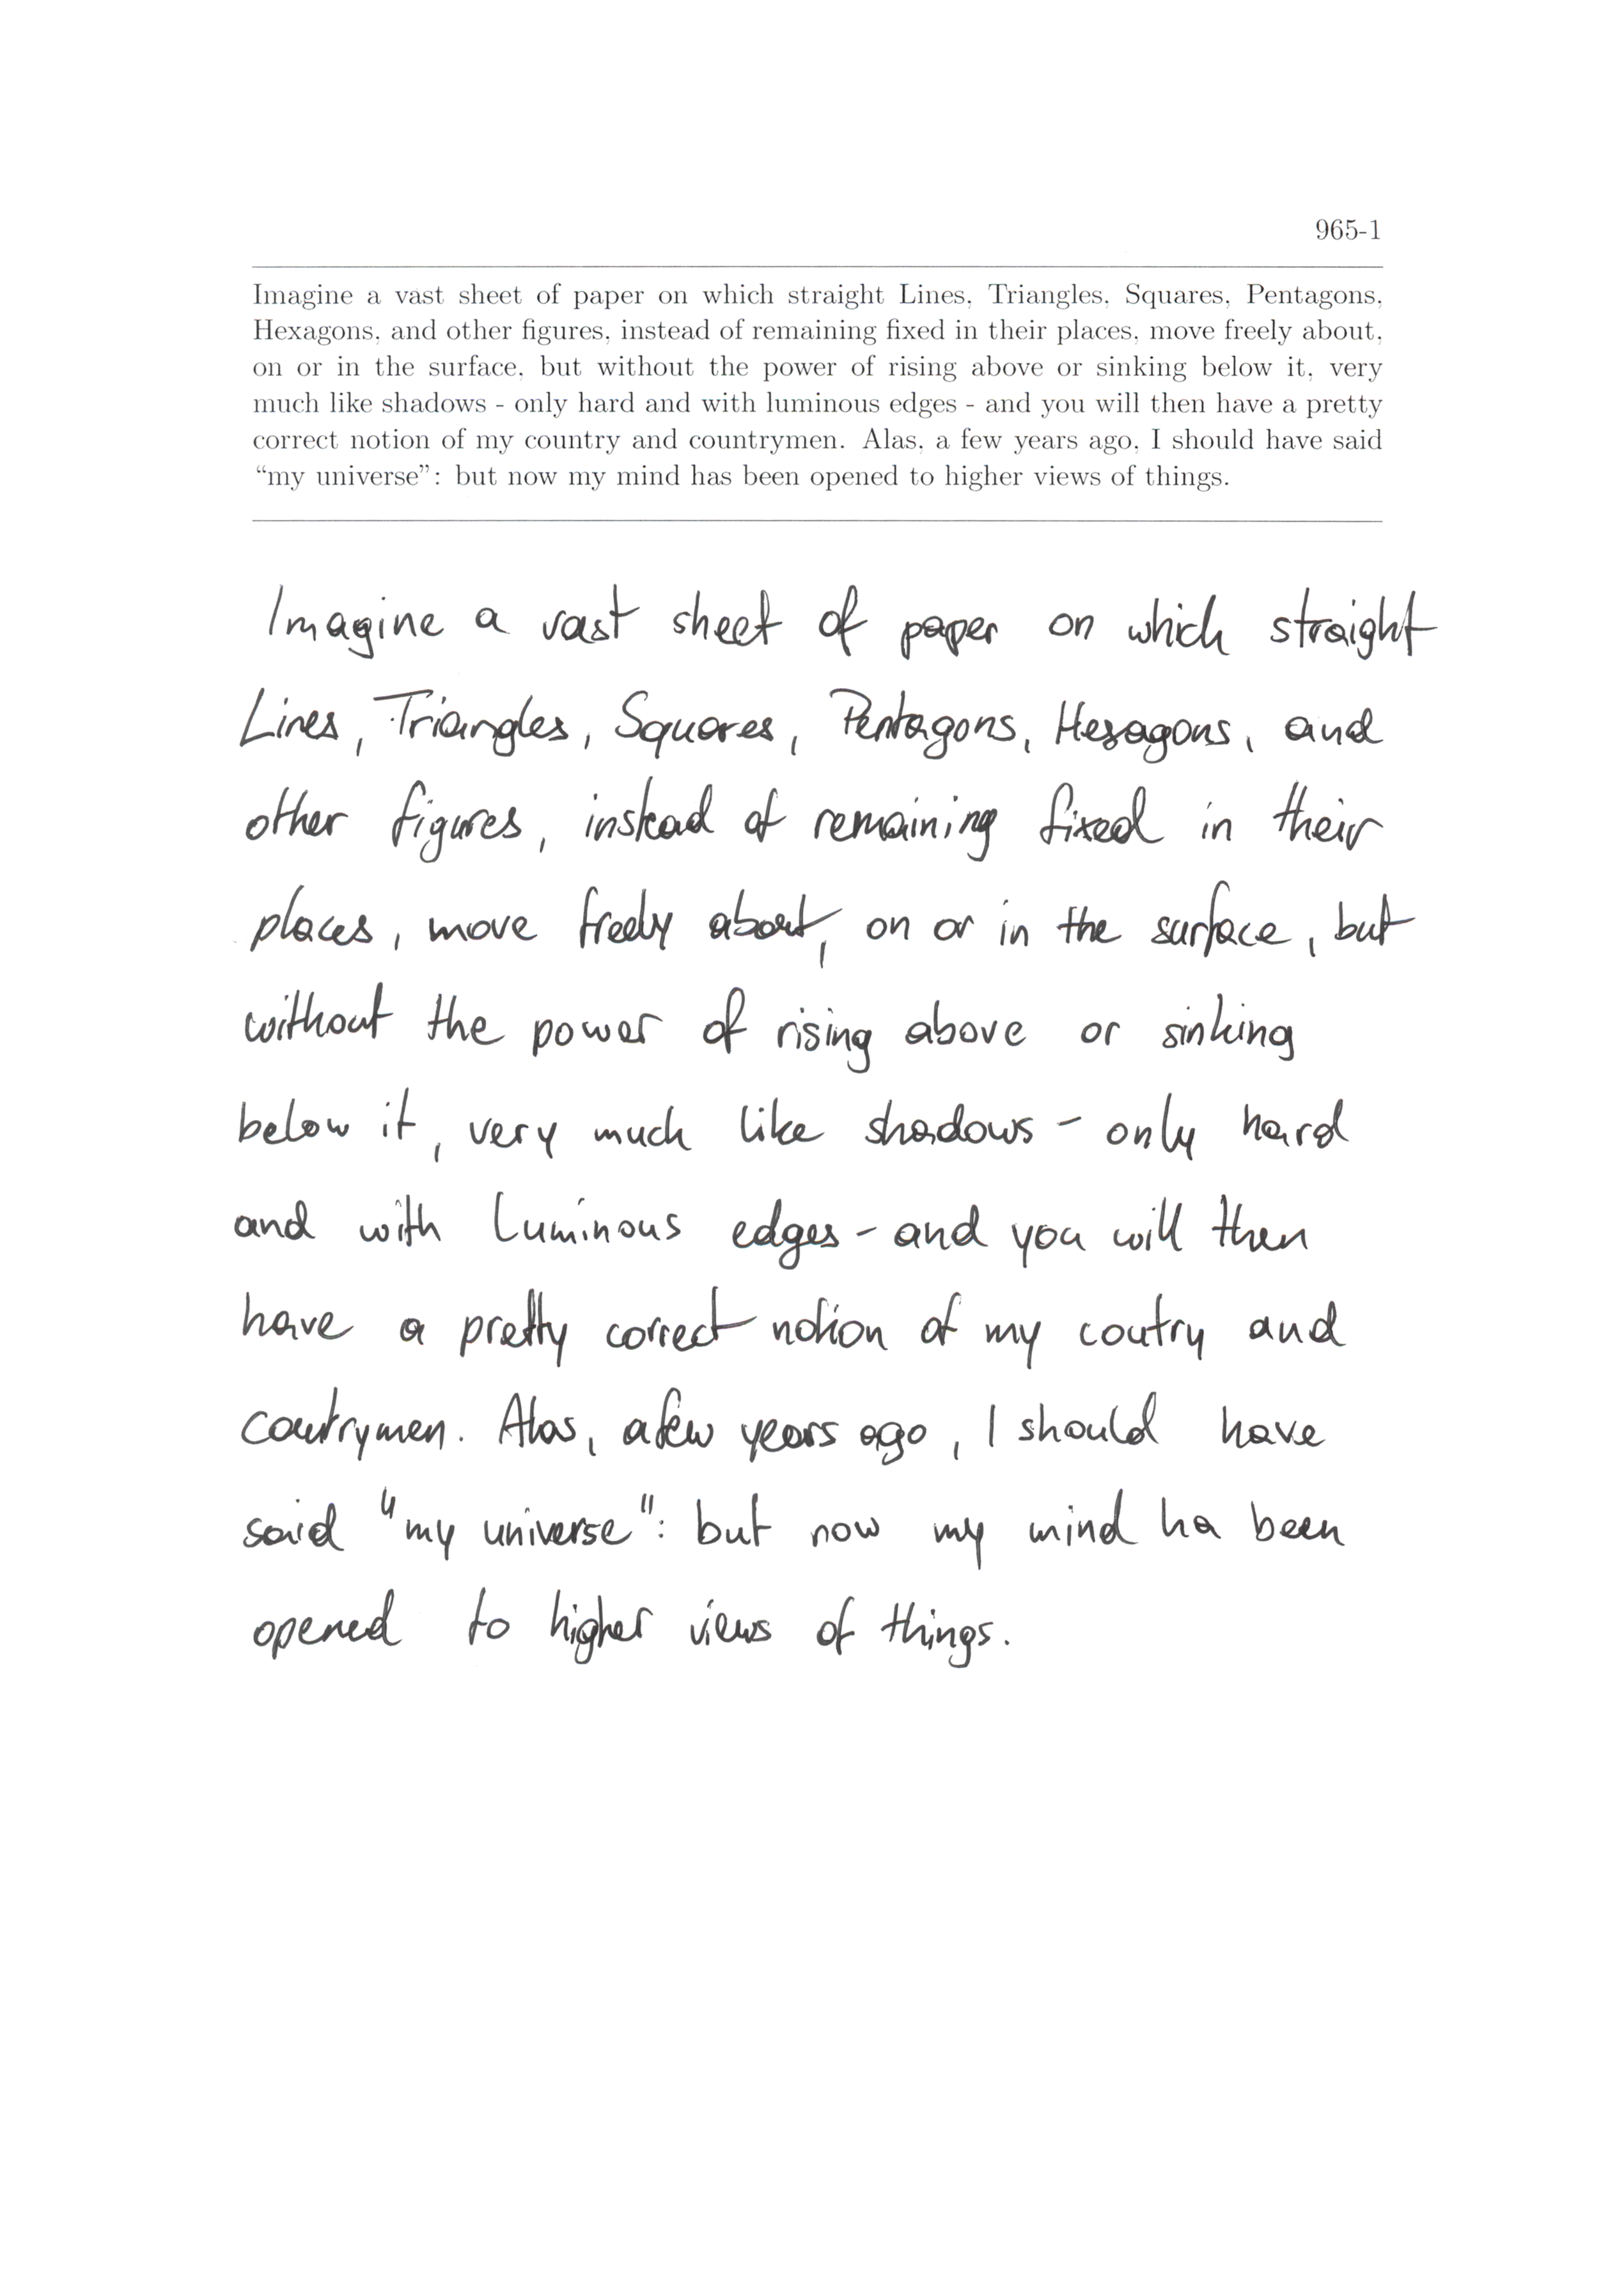 965-1
Imagine a vast sheet of paper on which straight Lines, Triangles, Squares, Pentagons,
Hexagons, and other figures, instead of remaining fixed in their places, move freely about,
on or in the surface, but without the power of rising above or sinking below it, very
much like shadows - only hard and with luminous edges - and you will then have a pretty
correct notion of my country and countrymen. Alas, a few years ago, I should have said
“my universe”: but now my mind has been opened to higher views of things.
Imagine a vast sheet of paper on which straight
Lines, Triangles, Squares, Pentagons, Hexagons, and
other figures, instead of remaining fixed in their
places, move freely about, on or in the surface, but
without the power of rising above or sinking
below it, very much like shadows - only hard
and with luminous edges - and you will then
have a pretty correct notion of my coutry and
coutrymen. Alas, a few years ago, I should have
said "my universe": but now my mind ha been
opened to higher views of things.